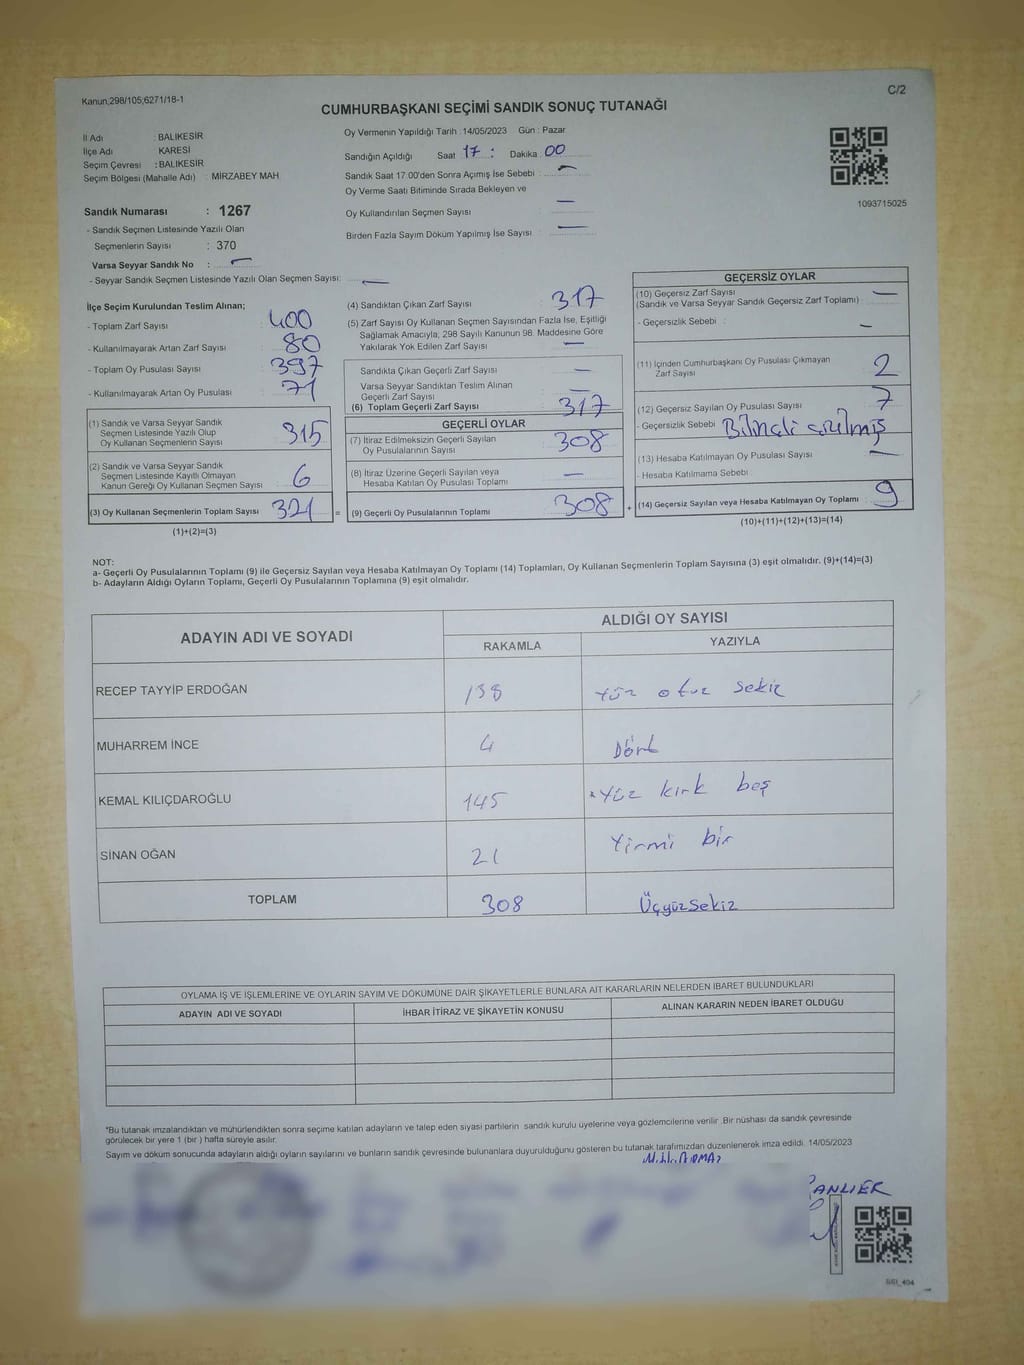 Kanun;298/105;6271/18-1
C/2
CUMHURBAŞKANI SEÇİMİ SANDIK SONUÇ TUTANAĞI
İl Adı : BALIKESİR
İlçe Adı : KARESİ
Seçim Çevresi : BALIKESİR
Seçim Bölgesi (Mahalle Adı) : MİRZABEY MAH
Sandık Numarası : 1267
- Sandık Seçmen Listesinde Yazılı Olan
Seçmenlerin Sayısı : 370
Varsa Seyyar Sandık No : —
- Seyyar Sandık Seçmen Listesinde Yazılı Olan Seçmen Sayısı: —
Oy Vermenin Yapıldığı Tarih : 14/05/2023 Gün : Pazar
Sandığın Açıldığı Saat 17 : Dakika : 00
Sandık Saat 17:00'den Sonra Açımış İse Sebebi : —
Oy Verme Saati Bitiminde Sırada Bekleyen ve
Oy Kullandırılan Seçmen Sayısı : —
Birden Fazla Sayım Döküm Yapılmış İse Sayısı : —
1093715025
İlçe Seçim Kurulundan Teslim Alınan;
- Toplam Zarf Sayısı : 400
- Kullanılmayarak Artan Zarf Sayısı : 80
- Toplam Oy Pusulası Sayısı : 397
- Kullanılmayarak Artan Oy Pusulası : 71
(1) Sandık ve Varsa Seyyar Sandık
Seçmen Listesinde Yazılı Olup
Oy Kullanan Seçmenlerin Sayısı 315
(2) Sandık ve Varsa Seyyar Sandık
Seçmen Listesinde Kayıtlı Olmayan
Kanun Gereği Oy Kullanan Seçmen Sayısı 6
(3) Oy Kullanan Seçmenlerin Toplam Sayısı 321
(1)+(2)=(3)
(4) Sandıktan Çıkan Zarf Sayısı 317
(5) Zarf Sayısı Oy Kullanan Seçmen Sayısından Fazla İse, Eşitliği
Sağlamak Amacıyla; 298 Sayılı Kanunun 98. Maddesine Göre
Yakılarak Yok Edilen Zarf Sayısı —
Sandıkta Çıkan Geçerli Zarf Sayısı —
Varsa Seyyar Sandıktan Teslim Alınan
Geçerli Zarf Sayısı —
(6) Toplam Geçerli Zarf Sayısı 317
GEÇERLİ OYLAR
(7) İtiraz Edilmeksizin Geçerli Sayılan
Oy Pusulasının Sayısı 308
(8) İtiraz Üzerine Geçerli Sayılan veya
Hesaba Katılan Oy Pusulası Toplamı —
= (9) Geçerli Oy Pusulalarının Toplamı 308
GEÇERSİZ OYLAR
(10) Geçersiz Zarf Sayısı
(Sandık ve Varsa Seyyar Sandık Geçersiz Zarf Toplamı) —
- Geçersizlik Sebebi : —
(11) İçinden Cumhurbaşkanı Oy Pusulası Çıkmayan
Zarf Sayısı 2
(12) Geçersiz Sayılan Oy Pusulası Sayısı 7
- Geçersizlik Sebebi Bilinçli çizilmiş
(13) Hesaba Katılmayan Oy Pusulası Sayısı —
- Hesaba Katılmama Sebebi :
+ (14) Geçersiz Sayılan veya Hesaba Katılmayan Oy Toplamı 9
(10)+(11)+(12)+(13)=(14)
NOT:
a- Geçerli Oy Pusulalarının Toplamı (9) ile Geçersiz Sayılan veya Hesaba Katılmayan Oy Toplamı (14) Toplamları, Oy Kullanan Seçmenlerin Toplam Sayısına (3) eşit olmalıdır. (9)+(14)=(3)
b- Adayların Aldığı Oyların Toplamı, Geçerli Oy Pusulalarının Toplamına (9) eşit olmalıdır.
ADAYIN ADI VE SOYADI
ALDIĞI OY SAYISI
RAKAMLA YAZIYLA
RECEP TAYYİP ERDOĞAN 138 Yüz otuz sekiz
MUHARREM İNCE 4 Dört
KEMAL KILIÇDAROĞLU 145 Yüz kırk beş
SİNAN OĞAN 21 Yirmi bir
TOPLAM 308 Üçyüzsekiz
OYLAMA İŞ VE İŞLEMLERİNE VE OYLARIN SAYIM VE DÖKÜMÜNE DAİR ŞİKAYETLERLE BUNLARA AİT KARARLARIN NELERDEN İBARET BULUNDUKLARI
ADAYIN ADI VE SOYADI İHBAR İTİRAZ VE ŞİKAYETİN KONUSU ALINAN KARARIN NEDEN İBARET OLDUĞU
*Bu tutanak imzalandıktan ve mühürlendikten sonra seçime katılan adayların ve talep eden siyasi partilerin sandık kurulu üyelerine veya gözlemcilerine verilir .Bir nüshası da sandık çevresinde
görülecek bir yere 1 (bir ) hafta süreyle asılır.
Sayım ve döküm sonucunda adayların aldığı oyların sayılarını ve bunların sandık çevresinde bulunanlara duyurulduğunu gösteren bu tutanak tarafımızdan düzenlenerek imza edildi. 14/05/2023